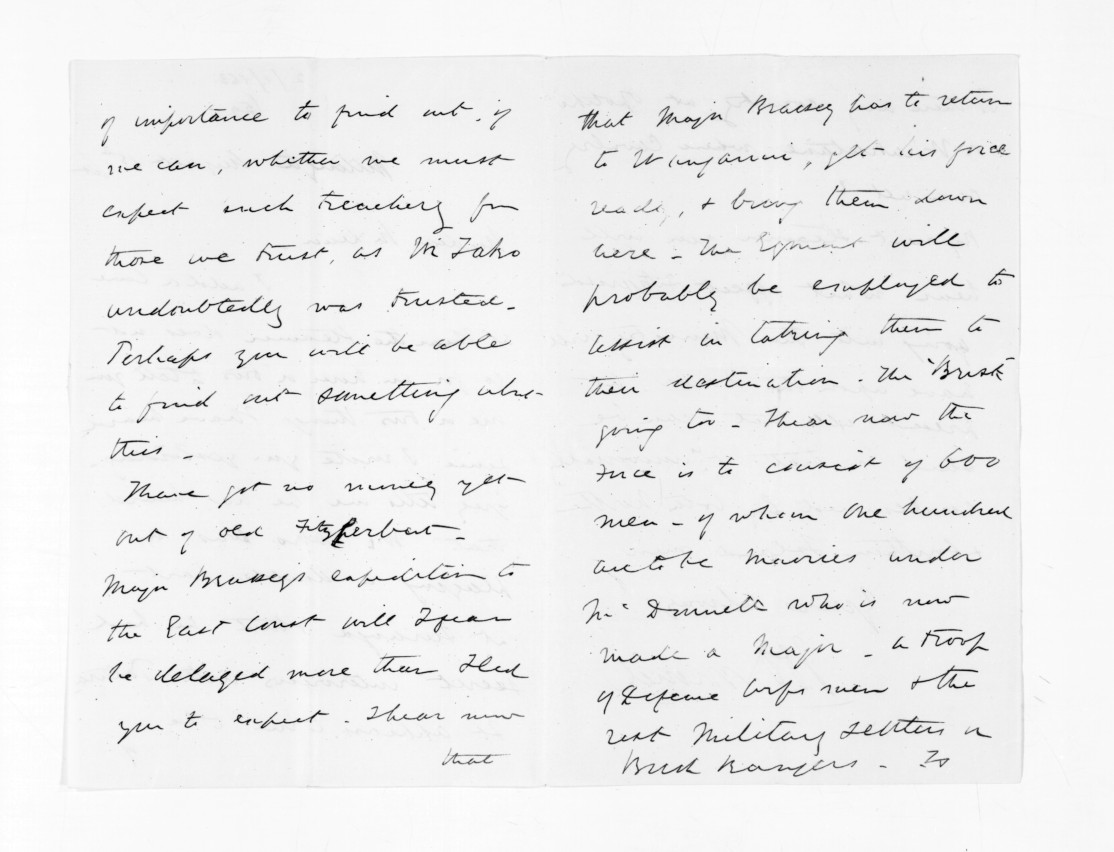 of importance to find out, if
we can, whether we must
expect such treachery from
those we trust, as Wi Tako
undoubtedly was trusted -
Perhaps you will be able
to find out something about
this -
I have got no money yet
out of old Fitzherbert -
Major Brassey's expedition to
the East Coast will I fear
be delayed more than I led
you to expect - I hear now
that
that Major Brassey has to return
to Wanganui, get his force
ready, & bring them down
here - The Egmont will
probably be employed to
assist in taking them to
their destination. The "Brisk"
going too - I hear now the
Force is to consist of 600
men - of whom one hundred
are to be Maories under
McDonnell who is now
made a Major - a troop
of Defence Corps men & the
rest Military Settlers or
Bush Rangers - To